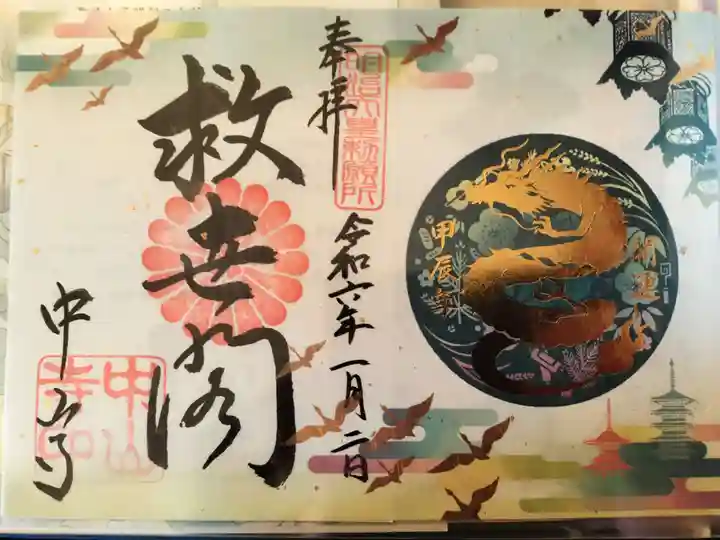 開運
甲辰
明治天皇勅願所
奉拝
令和六年一月二日
救世閣
中山寺
中山寺印